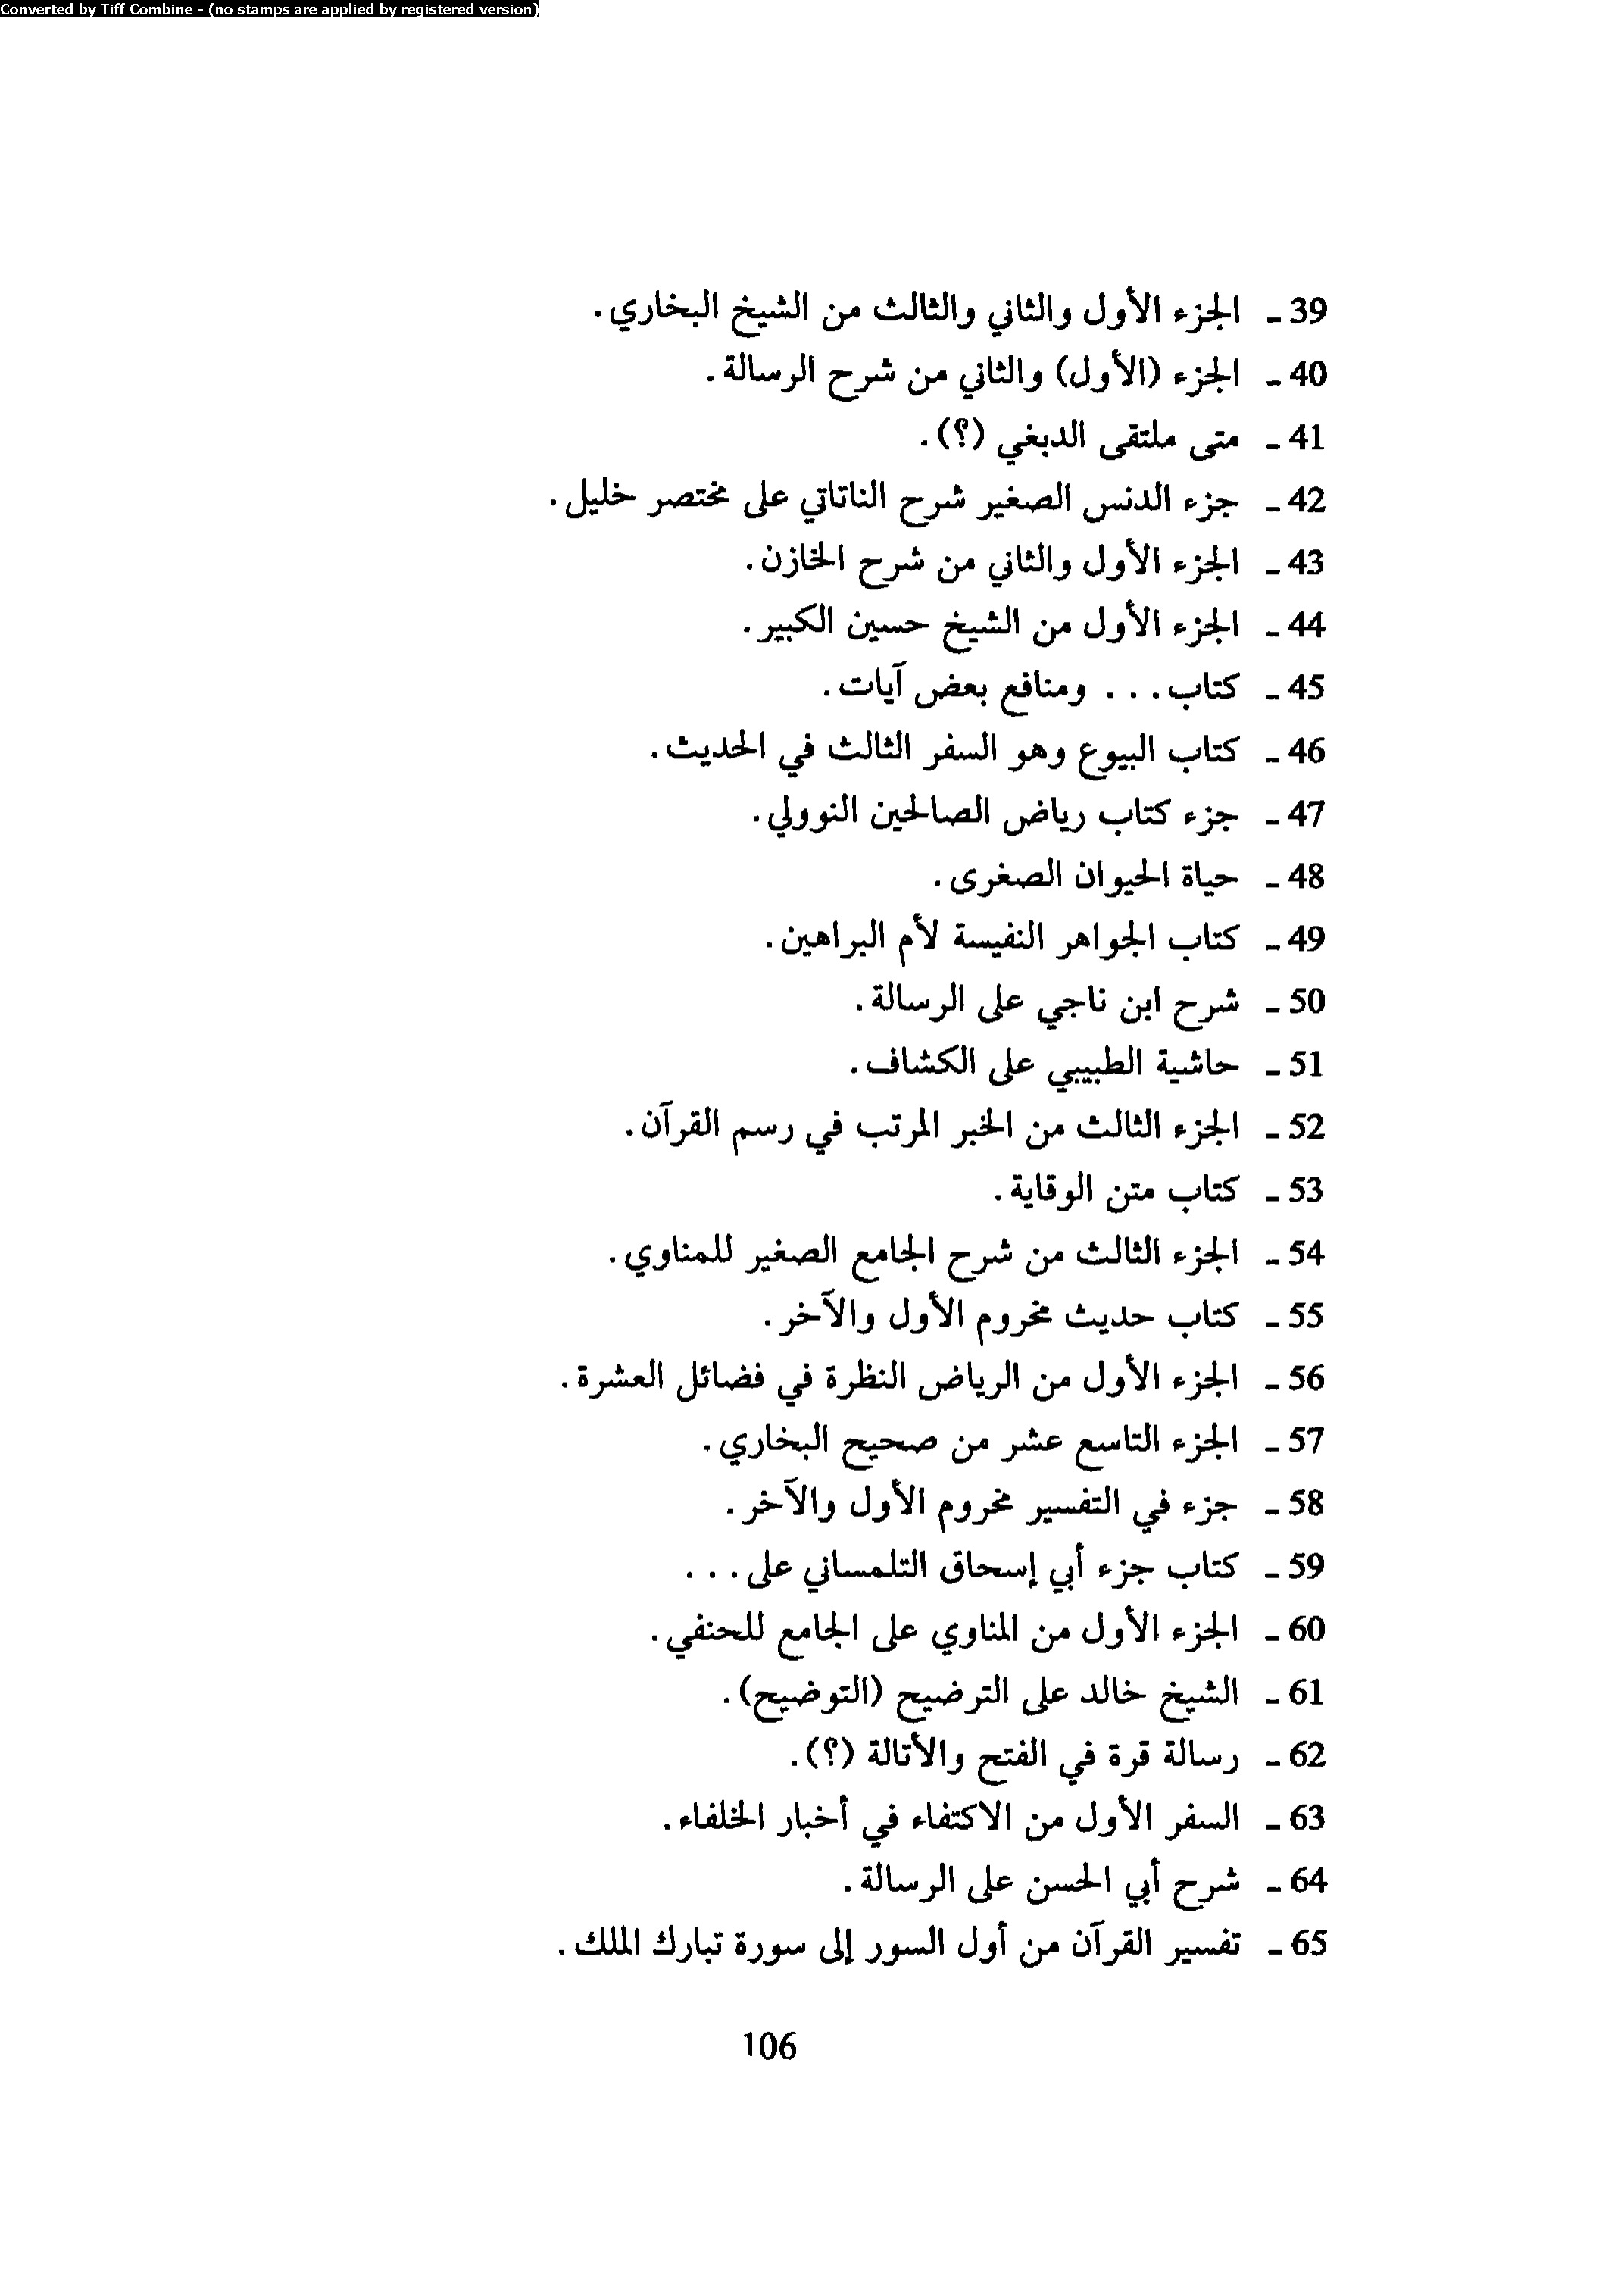 Converted by Tiff Combine - (no stamps are applied by registered version)
39 ـ الجزء الأول والثاني والثالث من الشيخ البخاري.
40 ـ الجزء (الأول) والثاني من شرح الرسالة.
41 ـ متى ملتقى الدبغي (؟).
42 ـ جزء الدنس الصغير شرح الناتاتي على مختصر خليل.
43 ـ الجزء الأول والثاني من شرح الخازن.
44 ـ الجزء الأول من الشيخ حسين الكبير.
45 ـ كتاب... ومنافع بعض آيات.
46 ـ كتاب البيوع وهو السفر الثالث في الحديث.
47 ـ جزء كتاب رياض الصالحين النوولي.
48 ـ حياة الحيوان الصغرى.
49 ـ كتاب الجواهر النفيسة لأم البراهين.
50 ـ شرح ابن ناجي على الرسالة.
51 ـ حاشية الطبيبي على الكشاف.
52 ـ الجزء الثالث من الخبر المرتب في رسم القرآن.
53 ـ كتاب متن الوقاية.
54 ـ الجزء الثالث من شرح الجامع الصغير للمناوي.
55 ـ كتاب حديث مخروم الأول والآخر.
56 ـ الجزء الأول من الرياض النظرة في فضائل العشرة.
57 ـ الجزء التاسع عشر من صحيح البخاري.
58 ـ جزء في التفسير مخروم الأول والآخر.
59 ـ كتاب جزء أبي إسحاق التلمساني على...
60 ـ الجزء الأول من المناوي على الجامع للحنفي.
61 ـ الشيخ خالد على الترضيح (التوضيح).
62 ـ رسالة قرة في الفتح والأتالة (؟).
63 ـ السفر الأول من الاكتفاء في أخبار الخلفاء.
64 ـ شرح أبي الحسن على الرسالة.
65 ـ تفسير القرآن من أول السور إلى سورة تبارك الملك.
106